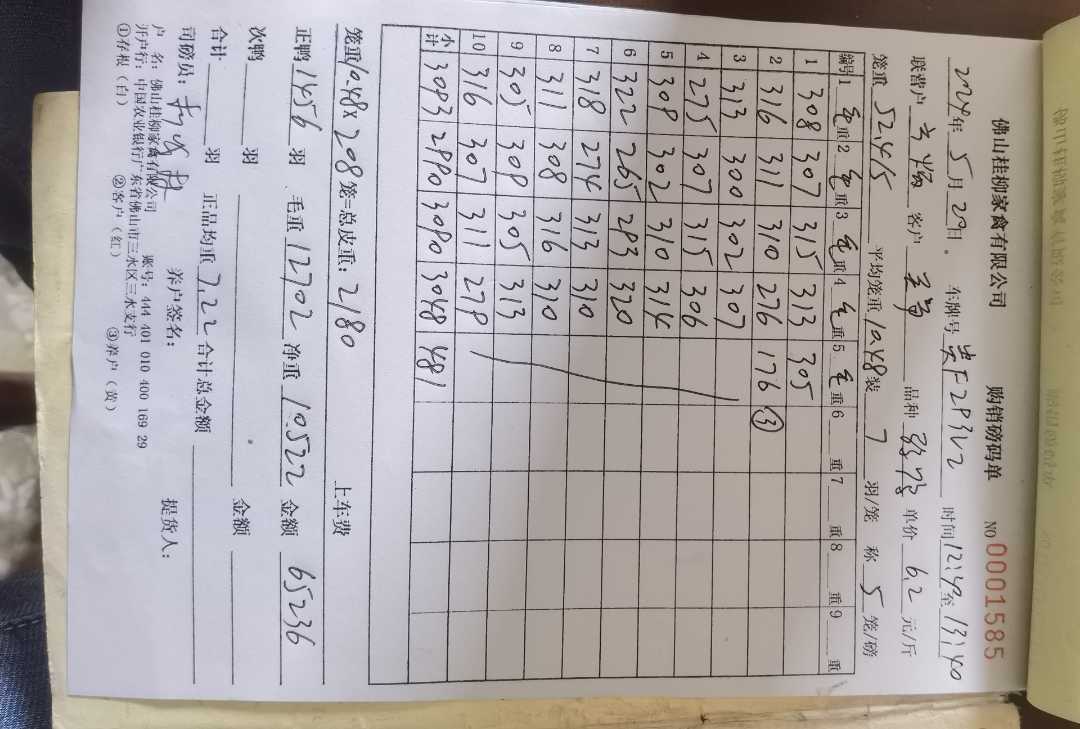 佛山桂柳家禽有限公司 购销磅码单 NO 0001585
2024年 5月 29日. 车牌号 F2P3V2 时间 12:40至 13:40
联营户 客户 品种 单价 6.2 元/斤
笼重 524/5 平均笼重 10.48 装 7 羽/笼 称 5 笼/磅
编号 1 毛重 2 毛重 3 毛重 4 毛重 5 毛重 6 重 7 重 8 重 9 重
1 308 307 315 313 305
2 316 311 310 276 176 ③
3 313 300 302 307
4 275 307 315 306
5 308 302 310 314
6 322 265 293 320
7 318 274 313 310
8 311 308 316 310
9 305 308 305 313
10 316 307 311 278
小计 3093 2990 3090 3048 481
笼重 10.48 x 208 笼=总皮重: 2180 上车费
正鸭 1456 羽 毛重 12702 净重 10522 金额 65236
次鸭 羽 金额
合计 羽 正品均重 7.22 合计总金额
司磅员: 养户签名: 提货人:
户 名: 佛山桂柳家禽有限公司 账号: 444 401 010 400 169 29
开户行: 中国农业银行广东省佛山市三水区三水支行
①存根（白） ②客户（红） ③养户（黄）